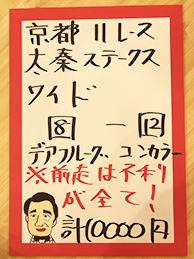 京都11レース
太秦ステークス
ワイド
8 ― 12
デアフルーグ、コンカラー
※前走は不利
が全て!
計10000円